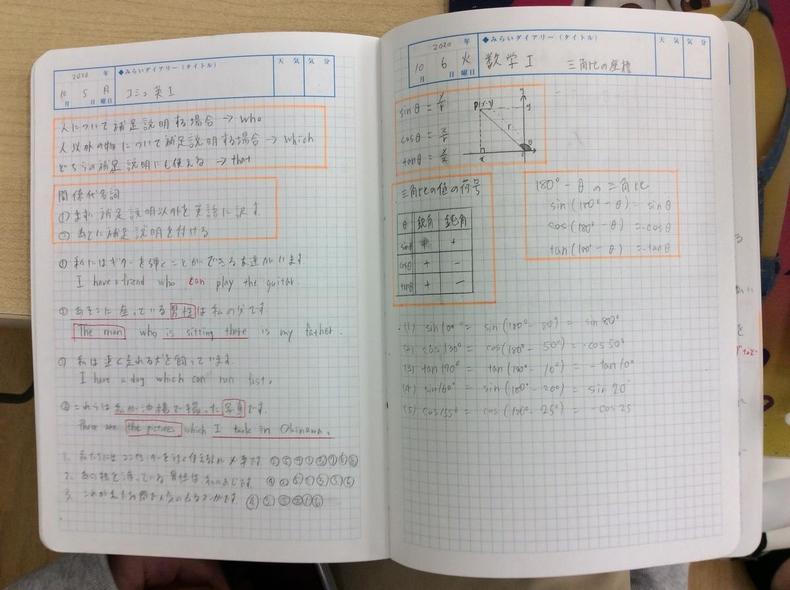 2020 年
◆みらいダイアリー(タイトル)
天 気 気 分
10 月 5 日 月 曜日
コミュ英I
人について補足説明する場合 → who
人以外の物について補足説明する場合 → which
どちらの補足説明にも使える → that
関係代名詞
① まず補足説明以外を英語に訳す
② あとに補足説明を付ける
① 私にはギターを弾くことができる友達がいます
I have a friend who can play the guitar.
② あそこに座っている男性は私の父です
The man who is sitting there is my father.
① 私は速く走れる犬を飼っています.
I have a dog which can run fast.
② これらは私が沖縄で撮った写真です.
These are the pictures which I took in Okinawa.
1.
2. 男性は
3.
2020 年
◆みらいダイアリー(タイトル)
天 気 気 分
10 月 6 日 火 曜日
数学I 三角比の座標
sinθ = y/r
cosθ = x/r
tanθ = y/x
P(x,y)
y
r
x
三角比の値の符号
θ 鋭角 鈍角
sinθ + +
cosθ + −
tanθ + −
180° − θ の三角比
sin(180° − θ) = sinθ
cos(180° − θ) = −cosθ
tan(180° − θ) = −tanθ
(1) sin100° = sin(180° − 80°) = sin80°
(2) cos130° = cos(180° − 50°) = −cos50°
(3) tan170° = tan(180° − 10°) = −tan10°
(4) sin160° = sin(180° − 20°) = sin20°
(5) cos155° = cos(180° − 25°) = −cos25